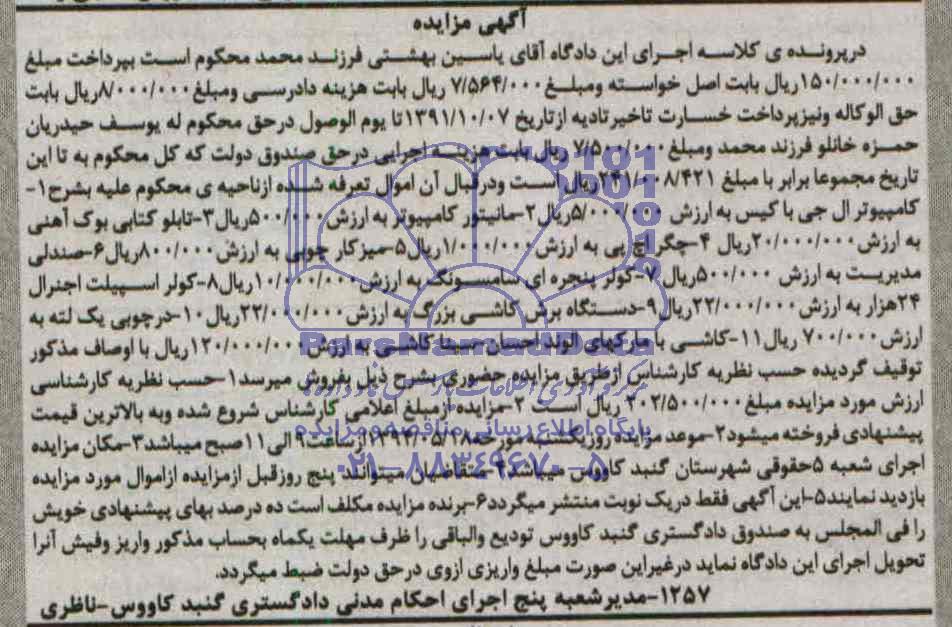 آگهی مزایده
درپرونده ی کلاسه اجرای این دادگاه آقای یاسین بهشتی فرزند محمد محکوم است بپرداخت مبلغ
۱۵۰/۰۰۰/۰۰۰ریال بابت اصل خواسته ومبلغ ۷/۵۶۴/۰۰۰ ریال بابت هزینه دادرسی ومبلغ ۸/۰۰۰/۰۰۰ریال بابت
حق الوکاله ونیزپرداخت خسارت تاخیرتادیه ازتاریخ ۱۳۹۱/۱۰/۰۷تا یوم الوصول درحق محکوم له یوسف حیدریان
حمزه خانلو فرزند محمد ومبلغ ۷/۵۰۰/۰۰۰ ریال بابت هزینه اجرایی درحق صندوق دولت که کل محکوم به تا این
تاریخ مجموعا برابر با مبلغ ۲۴۱/۰۰۸/۴۲۱ریال است ودرقبال آن اموال تعرفه شده ازناحیه ی محکوم علیه بشرح۱-
کامپیوتر ال جی با کیس به ارزش ۵/۰۰۰/۰۰۰ریال۲-مانیتور کامپیوتر به ارزش ۵۰۰/۰۰۰ریال۳-تابلو کتابی بوک آهنی
به ارزش۲۰/۰۰۰/۰۰۰ریال ۴-چگر اچ پی به ارزش ۱/۰۰۰/۰۰۰ریال۵-میزکار چوبی به ارزش ۸۰۰/۰۰۰ریال۶-صندلی
مدیریت به ارزش ۵۰۰/۰۰۰ریال۷-کولر پنجره ای سامسونگ به ارزش۱۰/۰۰۰/۰۰۰ریال۸-کولر اسپیلت اجنرال
۲۴هزار به ارزش۲۲/۰۰۰/۰۰۰ریال۹-دستگاه برش کاشی بزرگ به ارزش ۲۲/۰۰۰/۰۰۰ریال۱۰-درچوبی یک لته به
ارزش ۷۰۰/۰۰۰ ریال۱۱-کاشی با مارکهای الوند احسان-سینا کاشی به ارزش ۱۲۰/۰۰۰/۰۰۰ریال با اوصاف مذکور
توقیف گردیده حسب نظریه کارشناس ازطریق مزایده حضوری بشرح ذیل بفروش میرسد۱-حسب نظریه کارشناسی
ارزش مورد مزایده مبلغ ۲۰۲/۵۰۰/۰۰۰ ریال است ۲-مزایده ازمبلغ اعلامی کارشناس شروع شده وبه بالاترین قیمت
پیشنهادی فروخته میشود۲-موعد مزایده روزیکشنبه مورخه ۱۳۹۴/۰۵/۱۸ازساعت۹ الی ۱۱صبح میباشد۳-مکان مزایده
اجرای شعبه ۵حقوقی شهرستان گنبد کاووس میباشد۴-متقاضیان میتوانند پنج روزقبل ازمزایده ازاموال مورد مزایده
بازدید نمایند۵-این آگهی فقط دریک نوبت منتشر میگردد۶-برنده مزایده مکلف است ده درصد بهای پیشنهادی خویش
را فی المجلس به صندوق دادگستری گنبد کاووس تودیع والباقی را ظرف مهلت یکماه بحساب مذکور واریز وفیش آنرا
تحویل اجرای این دادگاه نماید درغیراین صورت مبلغ واریزی ازوی درحق دولت ضبط میگردد.
۱۲۵۷-مدیرشعبه پنج اجرای احکام مدنی دادگستری گنبد کاووس-ناظری
ParsNamadData
پایگاه اطلاع رسانی مناقصه و مزایده
۰۲۱-۸۸۳۴۹۶۷۰-۵